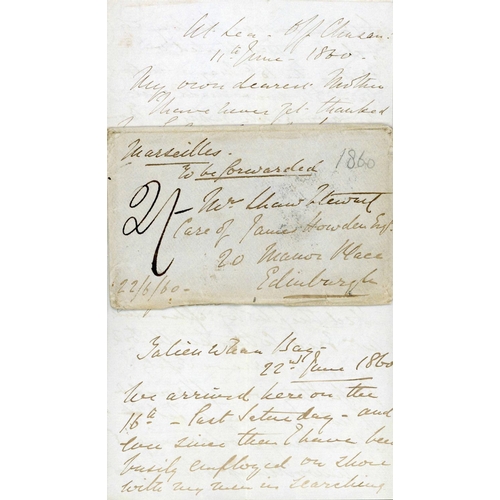 At Sea - Off Chusan.
11th June - 1860.
My own dearest Mother
I have never yet thanked
Marseilles.
To be forwarded
1860
2/-
Mrs Shaw Stewart
Care of James Howden Esqr.
20 Manor Place
Edinburgh
22/6/60-
Talien Whan Bay-
22nd June 1860
We arrived here on the
16th - last Saturday - and
ever since then I have been
busily employed on shore
with my men in searching